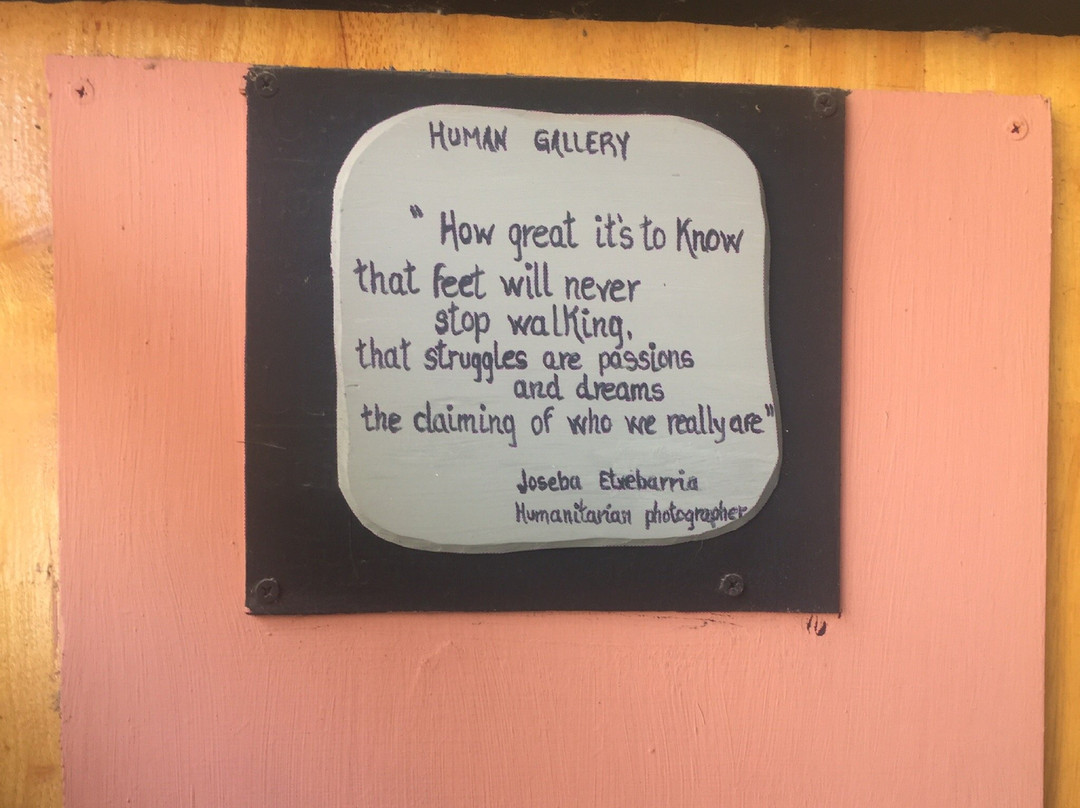 HUMAN GALLERY
" How great it's to Know
that feet will never
stop walKing,
that struggles are passions
and dreams
the claiming of who we really are"
Joseba Etxebarria
Humanitarian photographer